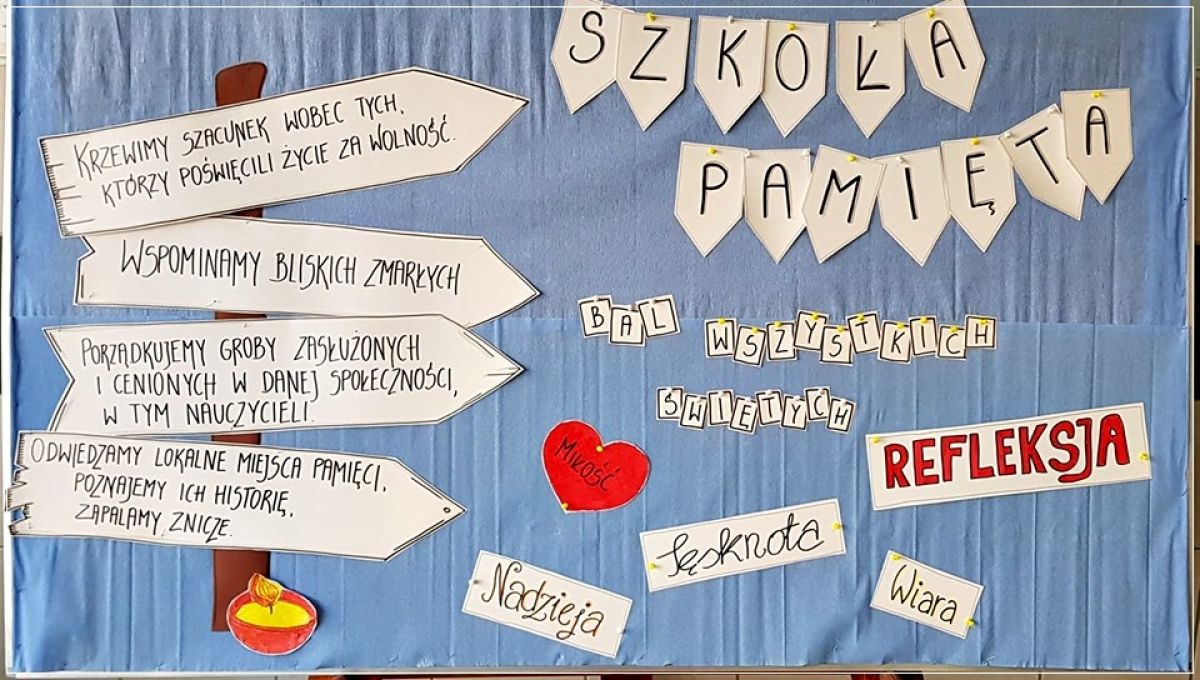 SZKOŁA
PAMIĘTA
KRZEWIMY SZACUNEK WOBEC TYCH,
KTÓRZY POŚWIĘCILI ŻYCIE ZA WOLNOŚĆ.
WSPOMINAMY BLISKICH ZMARŁYCH
PORZĄDKUJEMY GROBY ZASŁUŻONYCH
I CENIONYCH W DANEJ SPOŁECZNOŚCI,
W TYM NAUCZYCIELI.
ODWIEDZAMY LOKALNE MIEJSCA PAMIĘCI,
POZNAJEMY ICH HISTORIĘ,
ZAPALAMY ZNICZE.
BAL WSZYSTKICH
ŚWIĘTYCH
MIŁOŚĆ
REFLEKSJA
Tęsknota
Nadzieja
Wiara